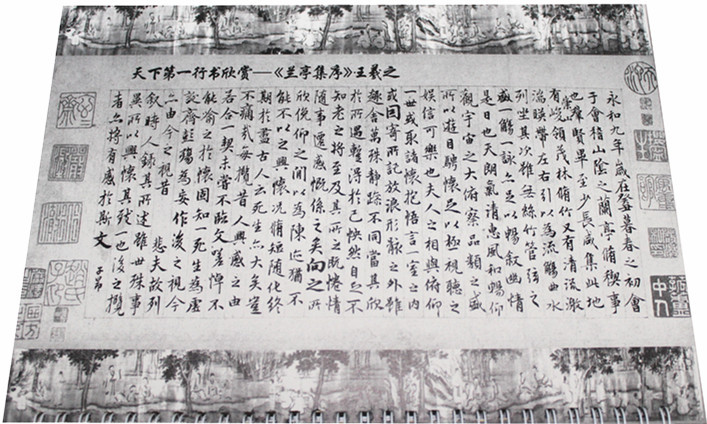 天下第一行书欣赏——《兰亭集序》王羲之
永和九年歲在癸丑暮春之初會
于會稽山陰之蘭亭脩禊事
也群賢畢至少長咸集此地
有崇山峻領茂林脩竹又有清流激
湍暎帶左右引以為流觴曲水
列坐其次雖無絲竹管弦之
盛一觴一詠亦足以暢敘幽情
是日也天朗氣清惠風和暢仰
觀宇宙之大俯察品類之盛
所以遊目騁懷足以極視聽之
娛信可樂也夫人之相與俯仰
一世或取諸懷抱悟言一室之內
或因寄所託放浪形骸之外雖
趣舍萬殊靜躁不同當其欣
於所遇暫得於己怏然自足不
知老之將至及其所之既惓情
隨事遷感慨係之矣向之所
欣俛仰之間以為陳迹猶不
能不以之興懷況脩短隨化終
期於盡古人云死生亦大矣豈
不痛哉每攬昔人興感之由
若合一契未嘗不臨文嗟悼不
能喻之於懷固知一死生為虛
誕齊彭殤為妄作後之視今
亦由今之視昔 悲夫故列
敘時人錄其所述雖世殊事
異所以興懷其致一也後之攬
者亦將有感於斯文
子昂